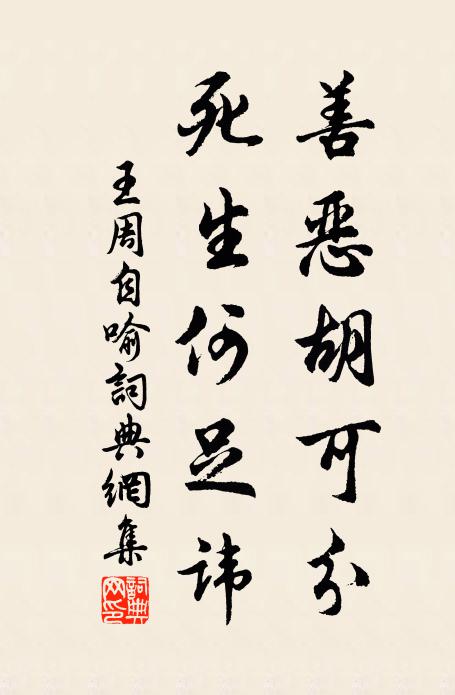 善惡胡可分
死生何足諱
王周自喻詞典網集
詞典
网印